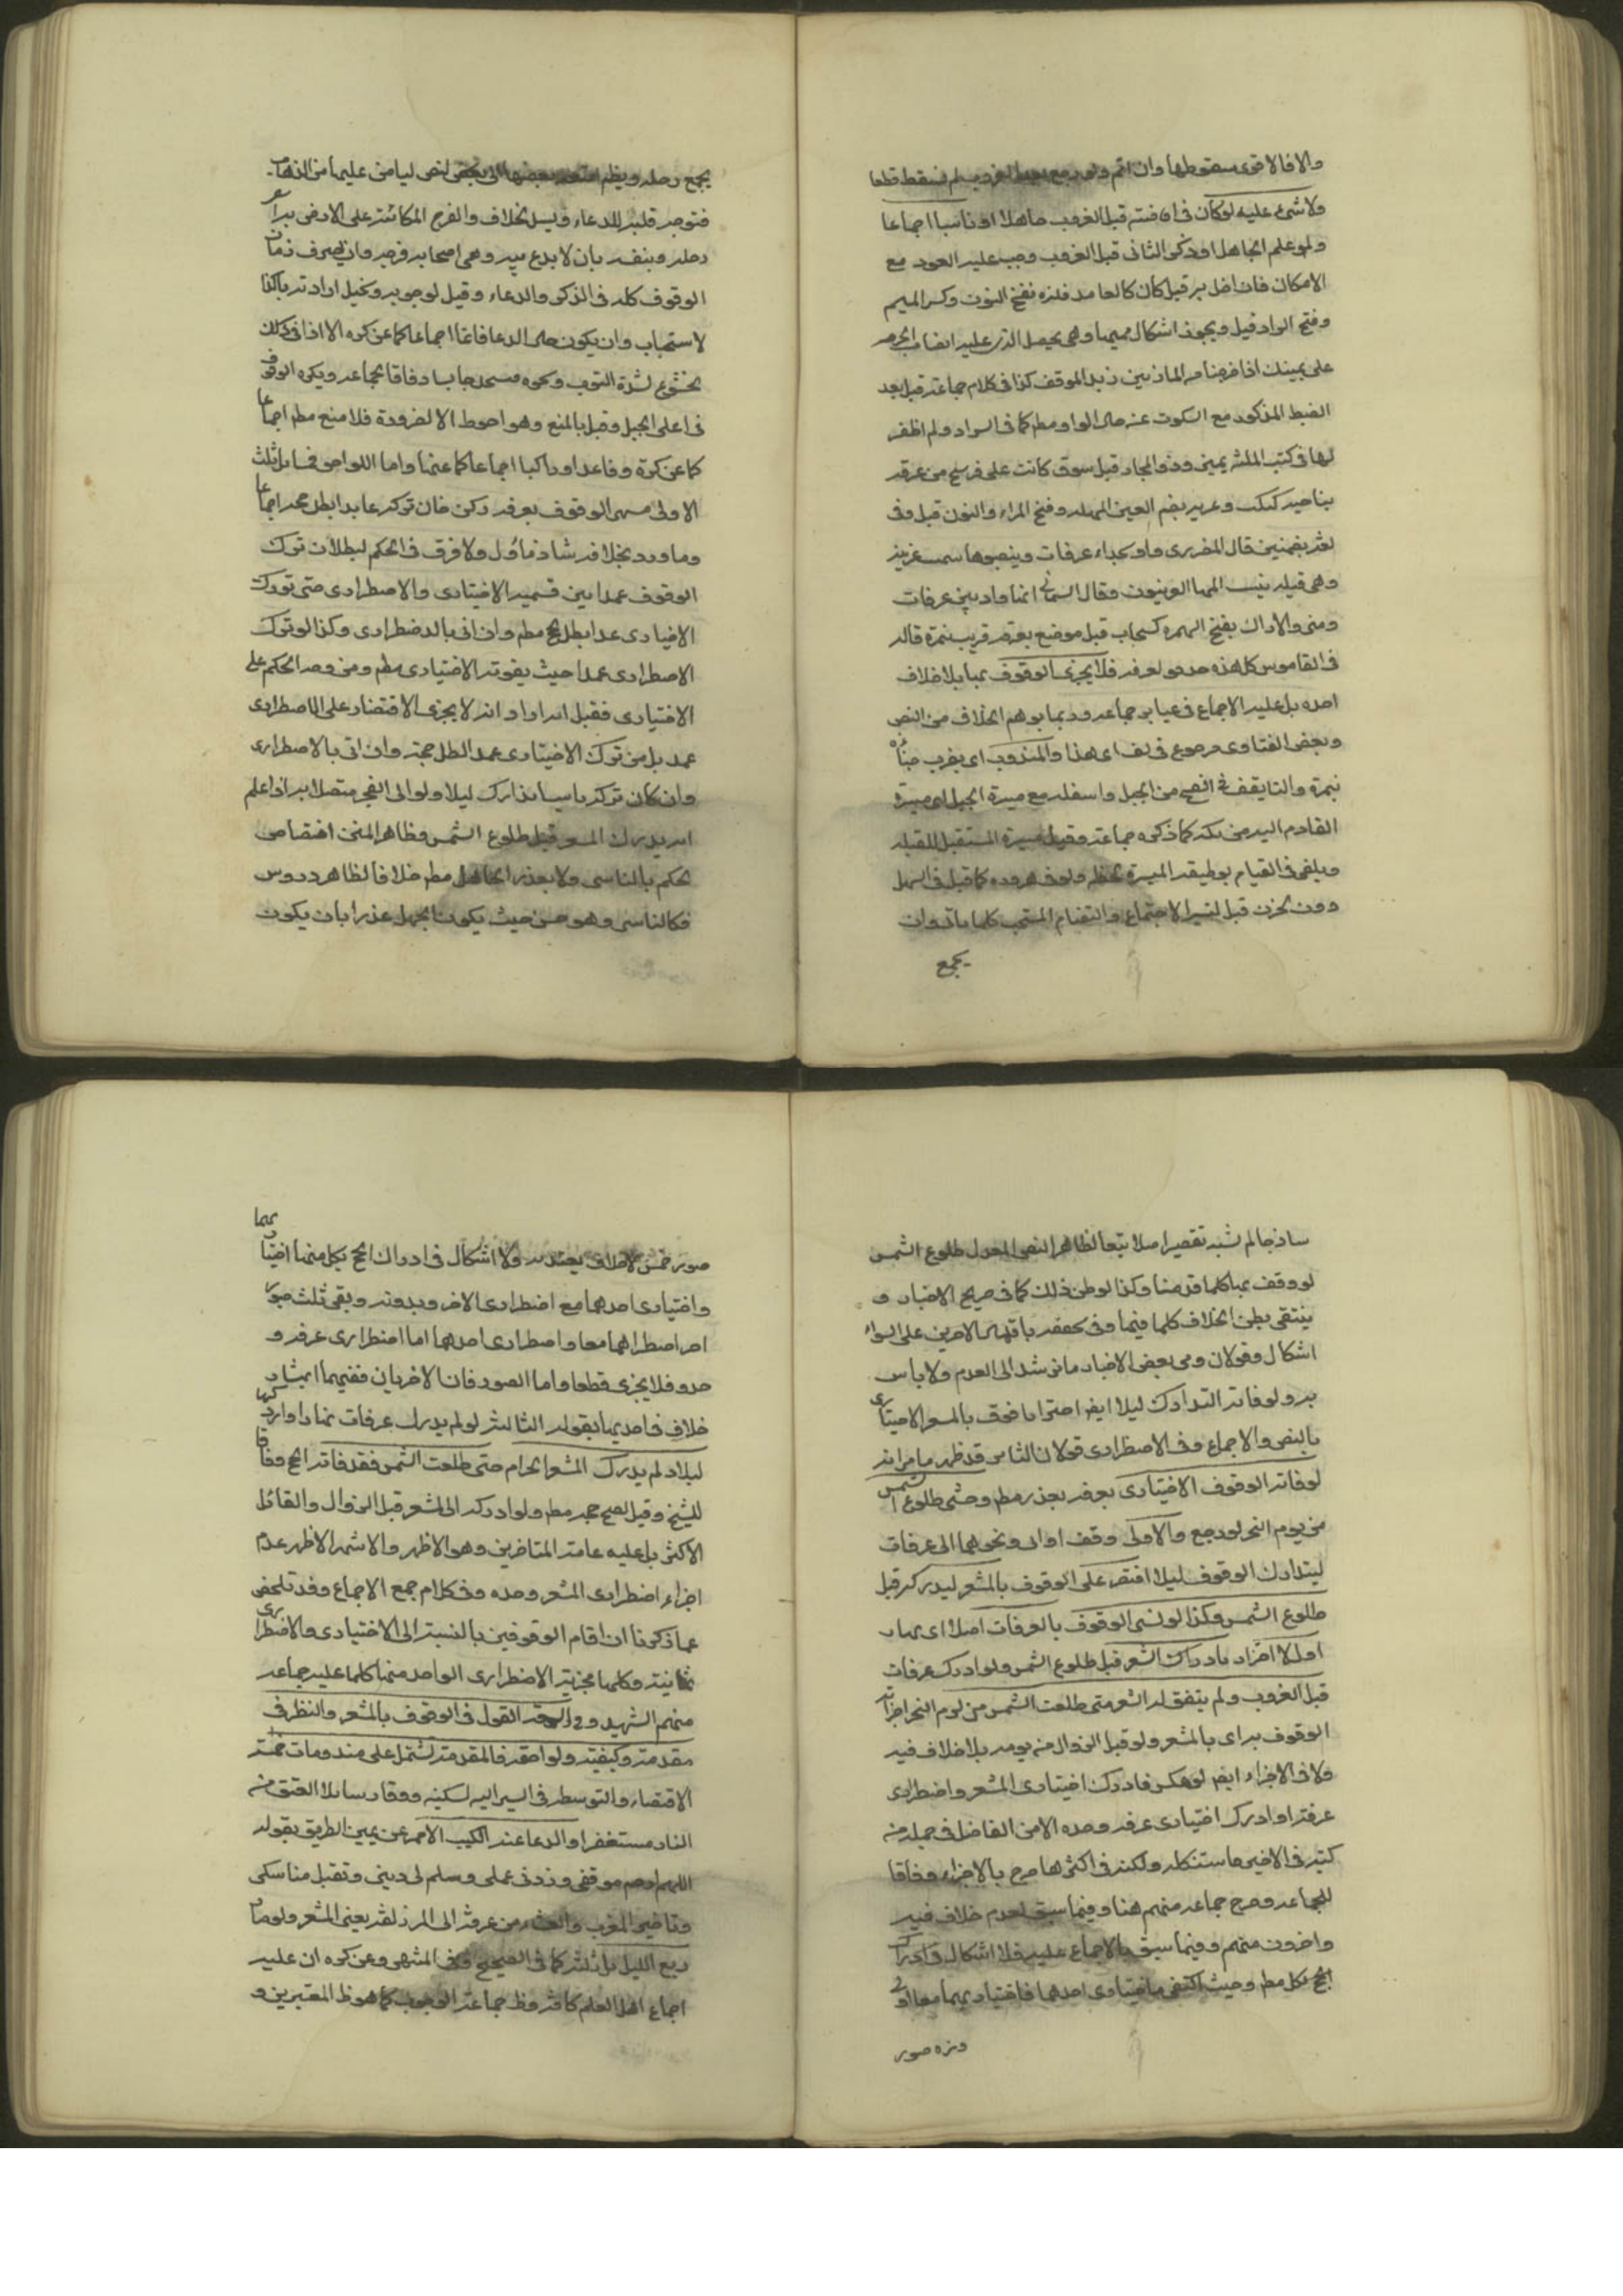 والا فالاقوى سقوطها وان اثم ولو رجع بعد الغروب لم تسقط قطعا
ولا شئ عليه لو كان فى افاضته قبل الغروب جاهلا او ناسيا اجماعا
ولو علم الجاهل او ذكر الثانى قبل الغروب وجب عليه العود مع
الامكان فان اخل به قيل كان كالعامد فنمره بفتح النون وكسر الميم
وفتح الراء قيل ويجوز اسكان ميمها وهى جبل الذى عليه انصاب الحرم
على يمينك اذا خرجت من المازمين تريد الموقف كذا فى كلام جماعة
الضبط المذكور مع السكوت عنه حال الواو مطم كما فى السراد ولم اظفر
لها فى كتب اللغة بمعنى وذو المجاز قيل سوق كانت على فرسخ من عرفه
بناحية كبكب وعرنه بضم العين المهملة وفتح الراء والنون قيل وفى
لغة بضمتين قال المطرزى واد بحذاء عرفات
وهى قبيلة ينسب اليها العرنيون وقال السمانى انها واد بين عرفات
ومنى والاراك بفتح الهمزه كسحاب قيل موضع بعرفة قريب نمرة قاله
فى القاموس كل هذه حدود لعرفه فلا يجزى الوقوف بها بلا خلاف
اجده بل عليه الاجماع فى عبائر جماعه وربما يوهم الخلاف من النص
وبعض الفتاوى مرجوع هذا والمندوب اى يضرب خباه
بنمرة والثا يقف فى السفح من الجبل واسفله مع ميسرة الجبل اى ميسرة
القادم اليه من مكه كما ذكره جماعة وقيل ميسرة المستقبل للقبله
ويكفى فى القيام بوظيفة الميسرة لحظه ولو فى مروره كما قيل فى السهل
دون الحزن قيل لتيسر الاجتماع والتضام المستحب كلما ياتى وان
يجمع
يجمع رحله ويضم امتعته بعضها الى بعض للنص ليامن عليها من الذهاب
فتوجه قلبه للدعاء ويسد الخلاف والفرج الكائنة على الارض
رحله وبنفسه بان لا يدع بينه وبين اصحابه فرجه وان يصرف زمان
الوقوف كله فى الذكر والدعاء وقيل لوجوبه ويحتمل ارادته تاكد
الاستحباب وان يكون حال الدعا قائما اجماعا كما عن كره الا اذا نافى ذلك
الخشوع لشدة التعب ونحوه فيستحب جالسا وفاقا لجماعه ويكره الوقوف
فى اعلى الجبل وقيل بالمنع وهو احوط الا لضرورة فلا منع مطم اجماعا
كما عن كرة وقاعدا وراكبا اجماعا كما عنها واما اللواحق فمسائل ثلث
الاولى مسمى الوقوف بعرفه ركن فان تركه عامدا بطل حجه اجماعا
وما ورد بخلافه شاذ مأول ولا فرق فى الحكم لبطلان ترك
الوقوف عمدا بين قسميه الاختيارى والاضطرارى حتى لو ترك
الاختيارى عمدا بطل حج مطم وان اتى بالاضطرارى وكذا لو ترك
الاضطرارى عمدا حيث يفوته الاختيارى مطم ومن قصر الحكم على
الاختيارى فقيل انه اراد انه لا يجزى الاقتصار على الاضطرارى
عمدا بل من ترك الاختيارى عمدا بطل حجه وان اتى بالاضطرارى
وان كان تركه ناسيا تدارك ليلا ولو الى الفجر متصلا به اذا علم
انه يدرك المشعر قبل طلوع الشمس وظاهر المتن اختصاص
الحكم بالناسى ولا يعذر الجاهل مطم خلافا لظاهر دروس
فكالناسى وهو حسن حيث يكون الجهل عذرا بان يكون
ساذجا لم تشبه تقصير اصلا تبعا لظاهر النص المعول طلوع الشمس
لو وقف بها كلما قدمنا وكذا لو ظن ذلك كما فى صريح الاخبار و
ينتفى بظن الخلاف كلما فيها وفى تحققه باقتران الامرين على السواء
اشكال وقولان وفى بعض الاخبار ما يرشد الى العدم ولا باس
به ولو فاته التدارك ليلا ايضا اجتزا بالوقوف بالمشعر الاختيارى
بالنص والاجماع وفى الاضطرارى قولان الثانى قد ظهر مما مر انه
لو فاته الوقوف الاختيارى بعرفه بعذر مطم وخشى طلوع الشمس
من يوم النحر لو رجع والاولى وقف او اتى ونحوهما الى عرفات
ليتدارك الوقوف ليلا اقتصر على الوقوف بالمشعر ليدركه قبل
طلوع الشمس وكذا لو نسى الوقوف بالعرفات اصلا اى نهارا
او ليلا اجتزاء بادراك المشعر قبل طلوع الشمس ولو ادرك عرفات
قبل الغروب ولم يتفق له المشعر حتى طلعت الشمس من يوم النحر اجزاته
الوقوف به اى بالمشعر ولو قبل الزوال منه يومه بلا خلاف فيه
ولا فى الاجزاء ايضا لو عكس فادرك اختيارى المشعر واضطرارى
عرفة او ادرك اختيارى عرفه وحده الا من الفاضل فى جملة من
كتبه فى الاخير فاستشكله ولكنه فى اكثرها صرح بالاجزاء وفاقا
للجماعه وصرح جماعه منهم هنا وفيما سبق بعدم خلاف فيه
واخرون منهم وفيما سبق بالاجماع عليه فلا اشكال فى ادراك
الحج بكل مطم وحيث اكتفى باختيارى احدهما فاختياريهما معا اولى
وهذه صور
صور خمس لا خلاف يعتد به ولا اشكال فى ادراك الحج بكل منها اختياريهما
واختيارى احدهما مع اضطرارى الاخر وبدونه وبقى ثلث صور
اخر اضطراراهما معا واضطرارى احدهما اما اضطرارى عرفه و
حده فلا يجزى قطعا واما الصورتان الاخريان ففيهما
خلاف فى احديهما بقوله الثالثه لو لم يدرك عرفات نهارا وادركها
ليلا ولم يدرك المشعر الحرام حتى طلعت الشمس فقد فاته الحج وفاقا
للشيخ وقيل يصح حجه مطم ولو ادركه الى المشعر قبل الزوال والقائل
الاكثر بل عليه عامة المتاخرين وهو الاظهر والاشهر الاظهر عدم
اجزاء اضطرارى المشعر وحده وفى كلام جمع الاجماع وقد تلخص
عما ذكرنا ان اقسام الوقوفين بالنسبة الى الاختيارى والاضطرارى
ثمانية وكلها مجزية الا اضطرارى الواحد منهما كلما عليه جماعه
منهم الشهيد القول فى الوقوف بالمشعر والنظر فى
مقدمته وكيفيته ولواحقه فالمقدمة تشتمل على مندوبات خمسة
الاقتصاد والتوسط فى السير اليه بسكينه ووقار سائلا العتق من
النار مستغفرا والدعاء عند الكثيب الاحمر عن يمين الطريق بقوله
اللهم ارحم موقفى وزد فى عملى وسلم لى دينى وتقبل مناسكى
وتاخير المغرب والعشاء من عرفة الى المزدلفة يعنى المشعر ولو صار
ربع الليل بل ثلثه كما فى الصحيح وفى المنتهى وعن كره ان عليه
اجماع اهل العلم كافة وظ جماعة الوجوب كما هو ظ المعتبرين و